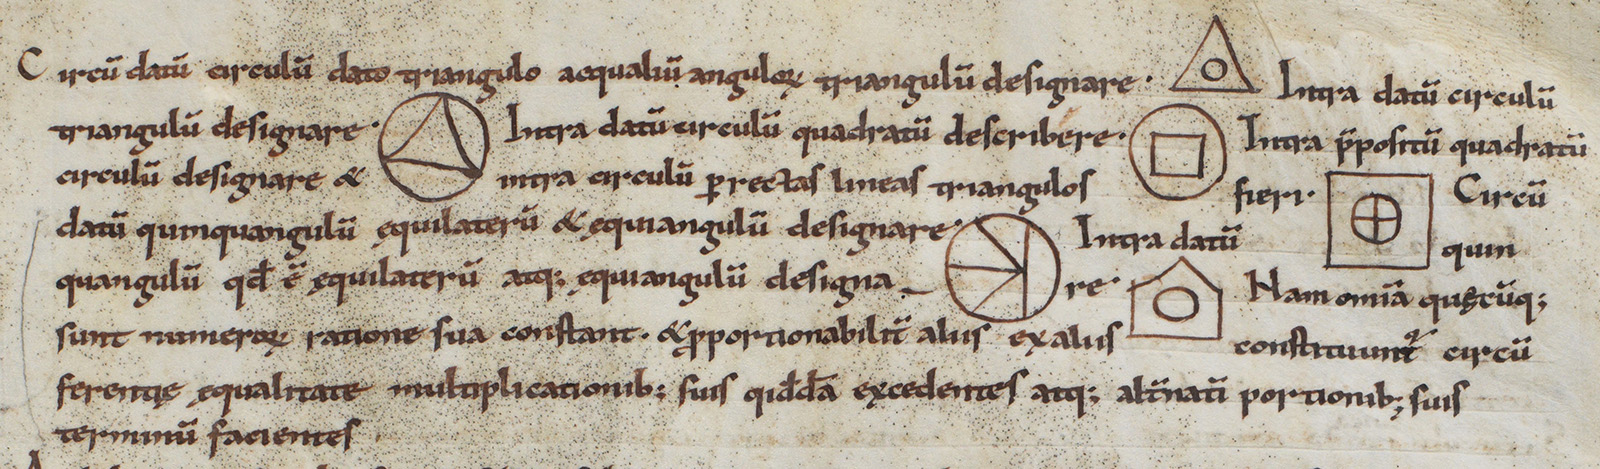 Circū datū circulū dato triangulo aequaliū anguloꝝ triangulū designare· Intra datū circulū
triangulū designare· Intra datū circulū quadratū describere· Intra p̄positū quadratū
circulū designare & intra circulū ꝑ rectas lineas triangulos fieri· Circū
datū quinquangulū ęquilaterū & ęquiangulū designare· Intra datū quin
quangulū qd̄ ē ęquilaterū atq; ęquiangulū designa_re· Nam omīa quęcūq;
sunt numeroꝝ ratione sua constant· & ꝓportionabilit̄ aliis ex aliis constituunt᷑ circū
ferentię ęqualitate multiplicationib; suis qid̄dā excedentes atq; alt̄natī portionib; suis
terminū facientes